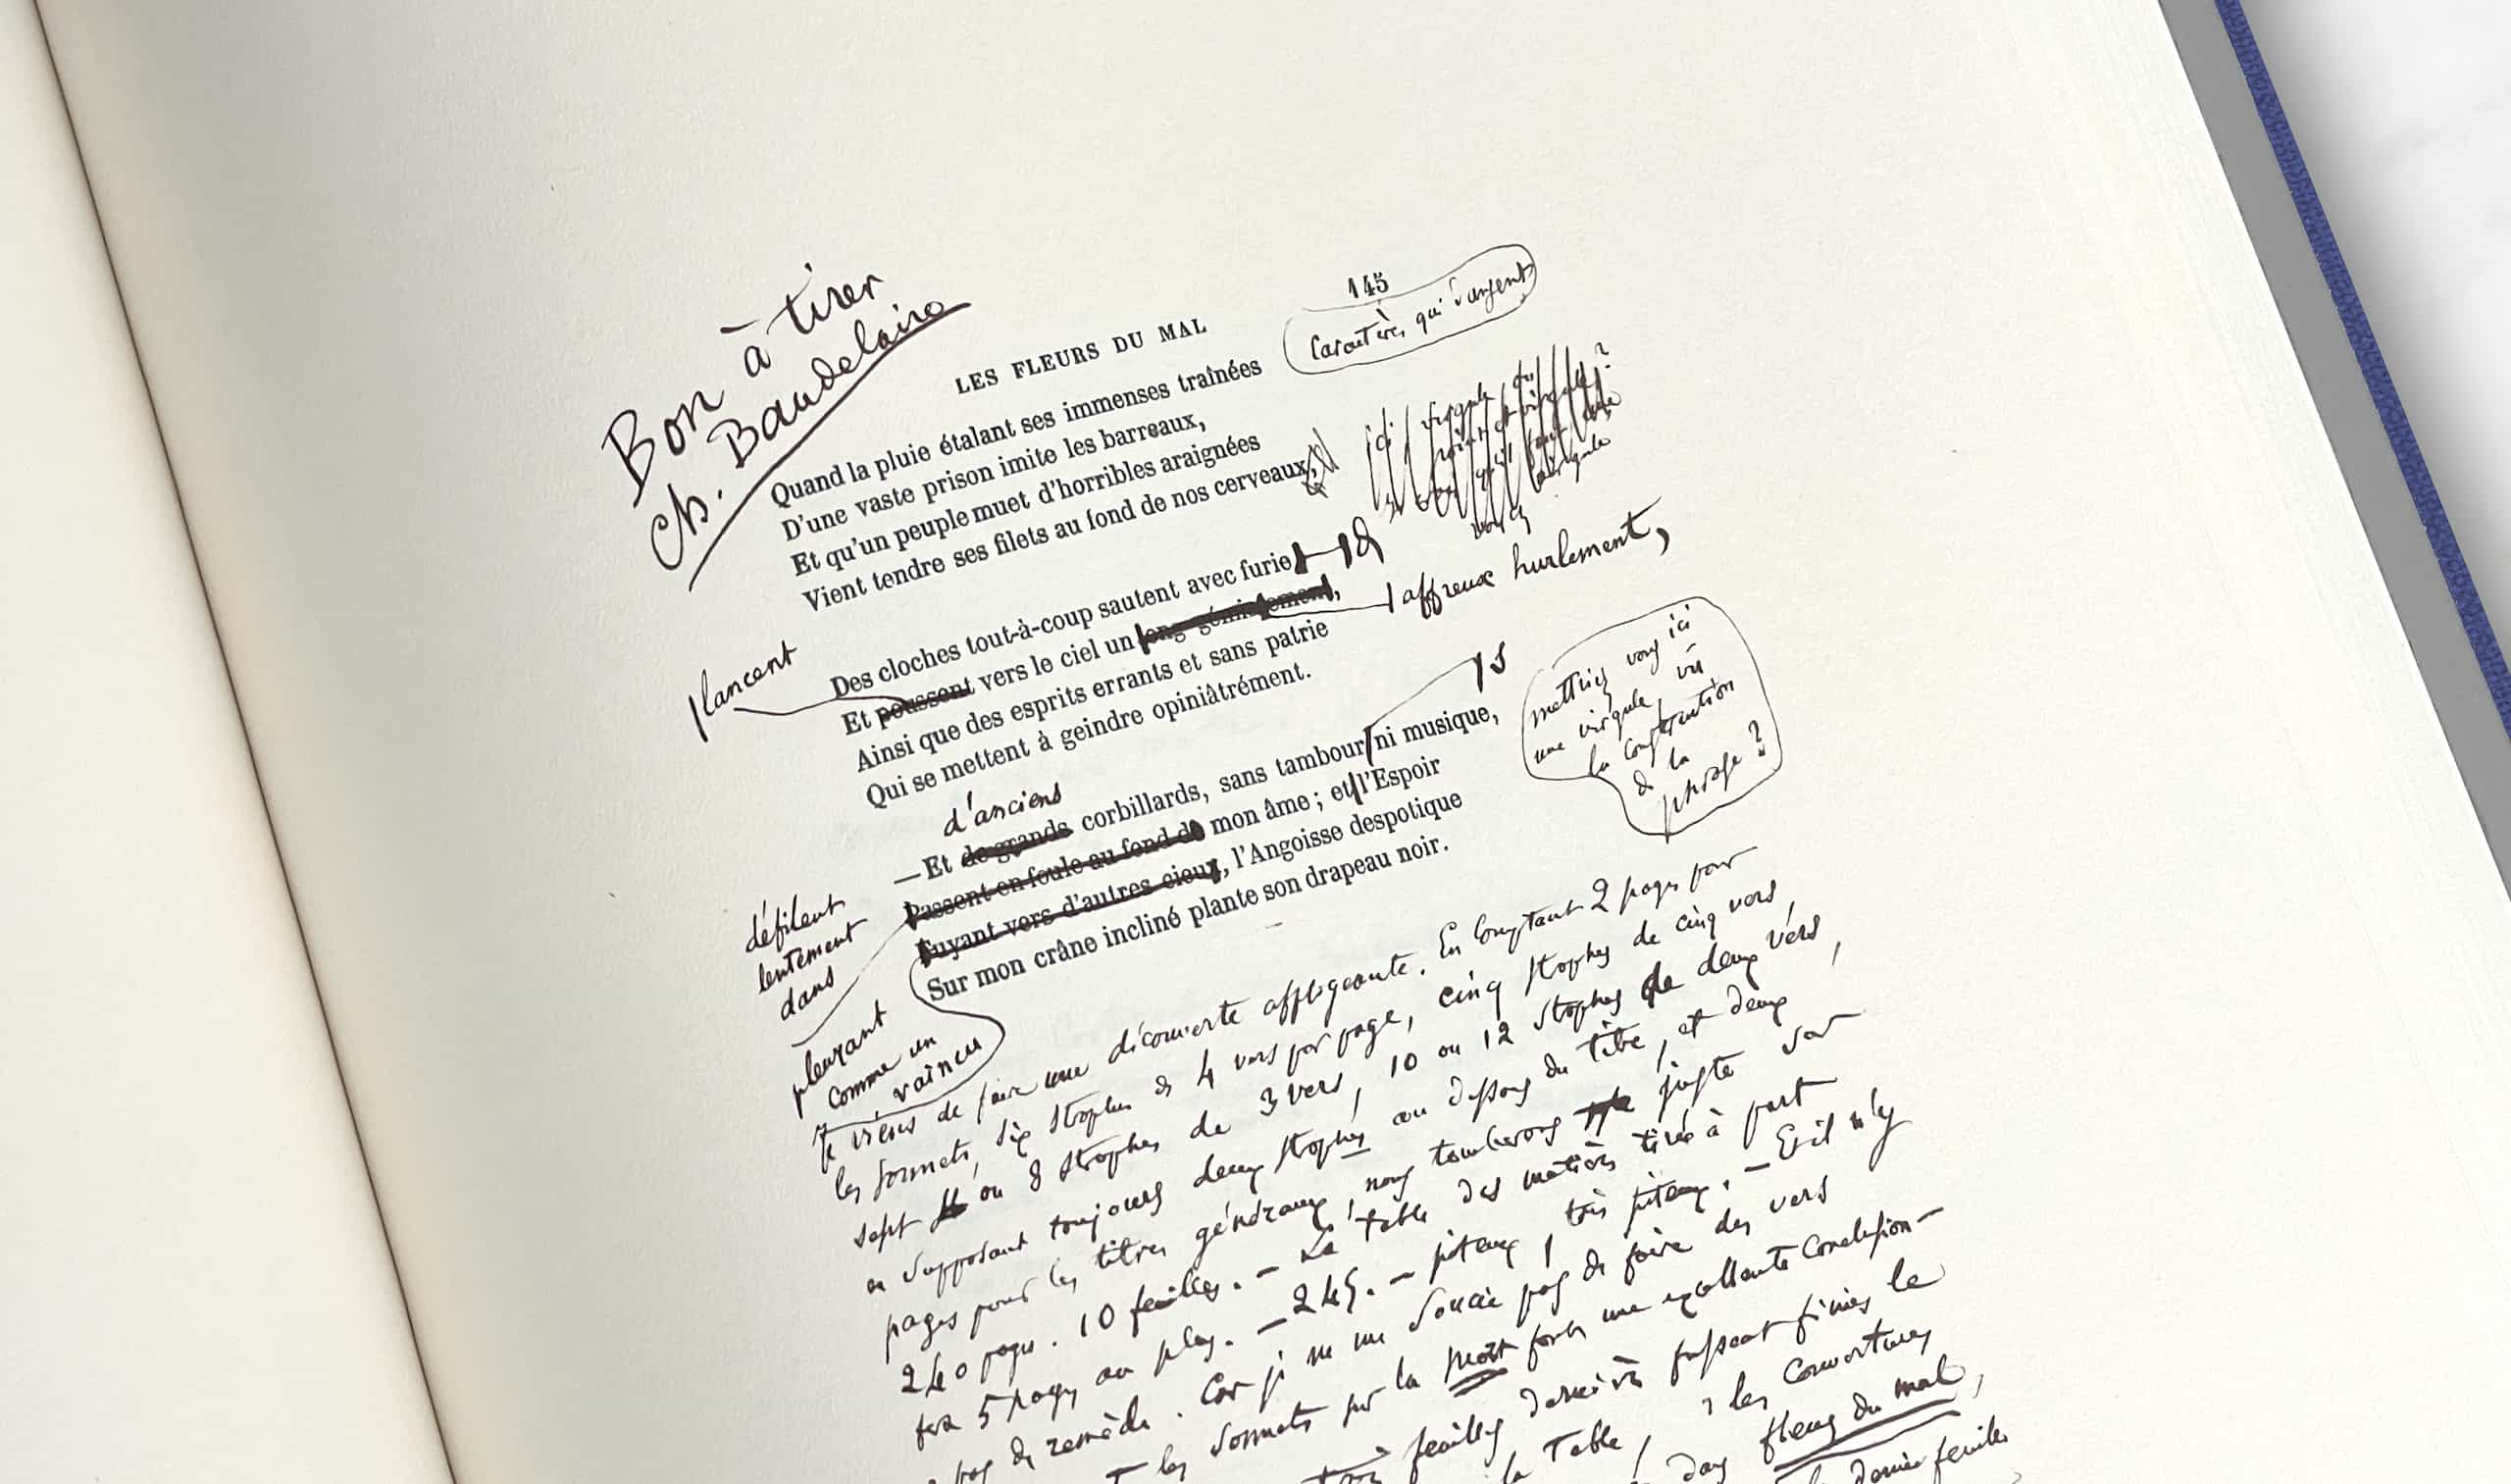 Bon à tirer
Ch. Baudelaire
145
Caractères qui
LES FLEURS DU MAL
Quand la pluie étalant ses immenses traînées
D'une vaste prison imite les barreaux,
Et qu'un peuple muet d'horribles araignées
Vient tendre ses filets au fond de nos cerveaux,
ici virgule ou
point et virgule?
Des cloches tout-à-coup sautent avec furie
lancent
Et poussent vers le ciel un long gémissement,
affreux hurlement,
Ainsi que des esprits errants et sans patrie
Qui se mettent à geindre opiniâtrément.
s
mettriez vous ici
une virgule, vu
la construction
de la
phrase?
d'anciens
—Et de grands corbillards, sans tambour ni musique,
Passent en foule au fond de mon âme; et l'Espoir
Fuyant vers d'autres cieux, l'Angoisse despotique
Sur mon crâne incliné plante son drapeau noir.
défilent
lentement
dans
pleurant
comme un
vaincu
Je viens de faire une découverte affligeante. En comptant 2 pages pour
les sonnets, six strophes de 4 vers par page, cinq strophes de cinq vers,
sept ou 8 strophes de 3 vers, 10 ou 12 strophes de deux vers,
en supposant toujours deux strophes au dessous du titre, et deux
pages pour les titres généraux, nous tomberons juste sur
240 pages. 10 feuilles. — La table des matières tirée à part
fera 5 pages au plus. — 245. — piteux, très piteux. — Et il n'y
a pas de remède. Car je ne me soucie pas de faire des vers
les sonnets sur la mort font une excellente conclusion —
feuilles dernières fussent finies le
la Table, les couvertures
dans fleurs du mal,
dernière feuille